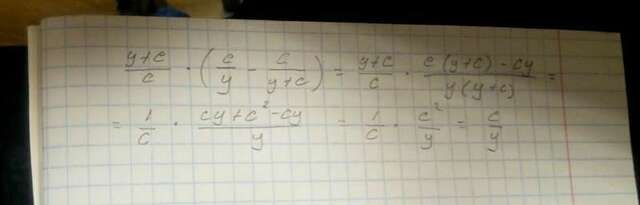 (y+c)/c · (c/y - c/(y+c)) = (y+c)/c · (c(y+c) - cy)/(y(y+c)) =
= 1/c · (cy + c² - cy)/y = 1/c · c²/y = c/y